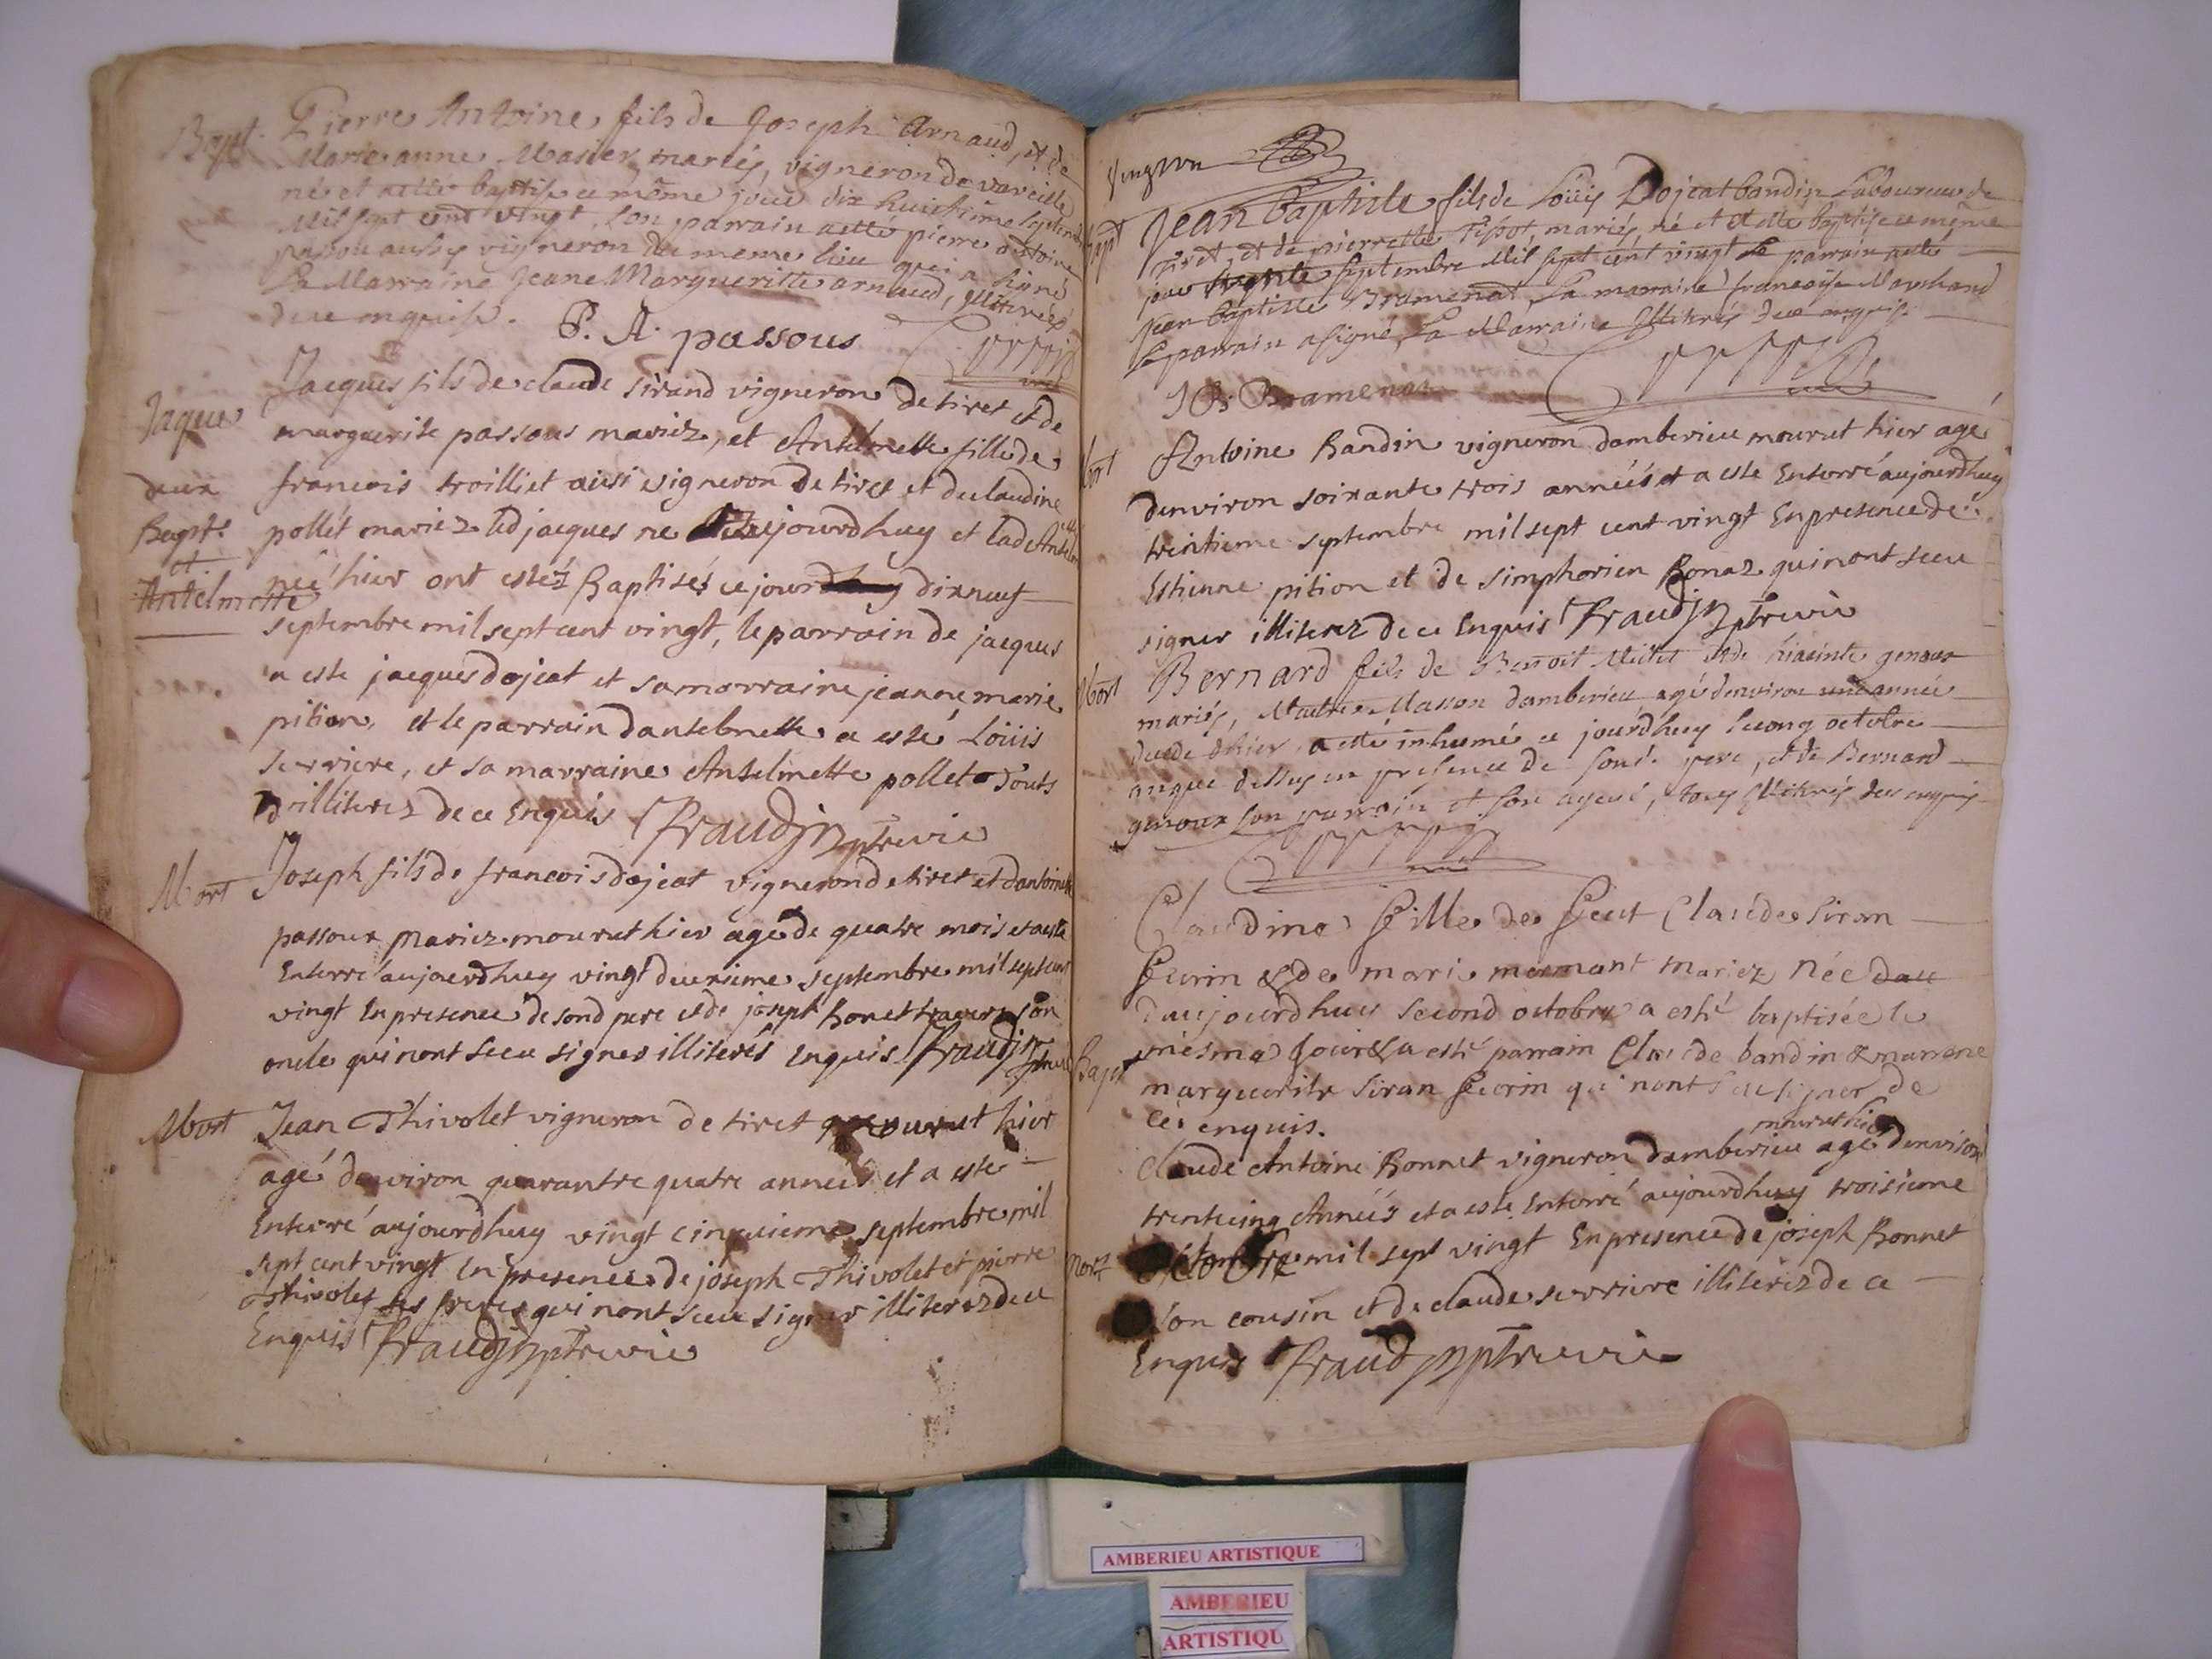 Bapt. Pierre Antoine fils de Joseph Arnaud, et de
Marie anne mariés, vigneron de vareille
né et a esté baptisé ce même jour dix huitieme septembre
Mil sept cent vingt. Son parrain a esté pierre antoine
passou aussy vigneron du meme lieu qui a signé
La Marraine Jeane Margueritte arnaud, illitirée
de ce enquise. P. A. passous
Jaques
deux
Bapt.
et
Antelmette
Jacques fils de claude sirand vigneron de tiret et de
marguerite passous mariez, et Antelmette fille de
francois trolliet aussi vigneron de tiret et de claudine
pollét mariez led jacques ne aujourdhuy et lad Antelm
neé hier ont estéz Baptisés ce jour dixneuf
septembre mil sept cent vingt, le parrain de jacques
a este jacques dojeat et sa marraine jeanne marie
pition, et le parrain dantelmette a esté Loüis
serriere, et sa marraine Antelmette pollet touts
illiterez de ce Enquis fraudin ptre vic
Mort Joseph fils de francois dojeat vigneron de tiret et dantoinette
passoux mariez mourut hier agé de quatre mois et a esté
Enterré aujourdhuy vingt deuxieme septembre mil sept cent
vingt En presence de sond pere et de joseph bonet son
oncle qui nont sceu signer illiterés enquis fraudin ptre vic
Mort Jean Thivolet vigneron de tiret mourut hier
agé denviron quarantre quatre anneés et a este
Enterré aujourdhuy vingt cinquieme septembre mil
sept cent vingt En presence de joseph Thivolet et pierre
Thivolet ses freres qui nont sceu signer illiterez de ce
Enquis fraudin ptre vic
Bapt Jean baptiste fils de Loüis Dojeat bandin Laboureur de
Tiret, et de pierrette Tissot, mariés, né et a esté baptisé ce même
jour trente septembre Mil sept cent vingt Le parrain a esté
Jean baptiste Bramenat La marraine francoise Marchand
Le parrain a signé, La Marraine illitirée de ce enquise.
J B. Bramenat
Mort Antoine Bandin vigneron damberieu mourut hier agé
denviron soixante trois anneés et a este Enterré aujourdhuy
trentieme septembre mil sept cent vingt En presence de
Estienne pition et de simphorien Bonaz qui nont sceu
signer illiterez de ce Enquis fraudin ptre vic
Mort Bernard fils de Benoit Millet et de hiacinte genoux
mariés, Maitre Masson damberieu agé denviron une année
decede dhier, a esté inhumé ce jourdhuy second octobre
anque dessus en presence de sond. pere, et de Bernard
genoux son parrain et son ayeul, tous illitirés de ce enquis
Claudine fille de feut Claude siran
Guerin & de mari mermant mariez Née
daujourdhuy second octobre a esté baptisée le
Bapt mesme jour & a esté parrain Claude bandin & marrene
marguerite siran Guerin qui nont sceu signer de
ce enquis.
mourut hier
Claude Antoine Bonnet vigneron damberieu agé denviron
trentecinq Anneés et a este Enterré aujourdhuy troisieme
Mort octobre mil sept vingt En presence de joseph Bonnet
son cousin et de claude serriere illiterez de ce
Enquis fraudin ptre vic
AMBERIEU ARTISTIQUE
AMBERIEU
ARTISTIQU